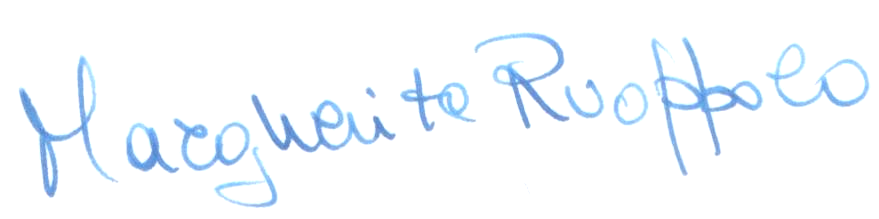 Margherita Ruoppolo